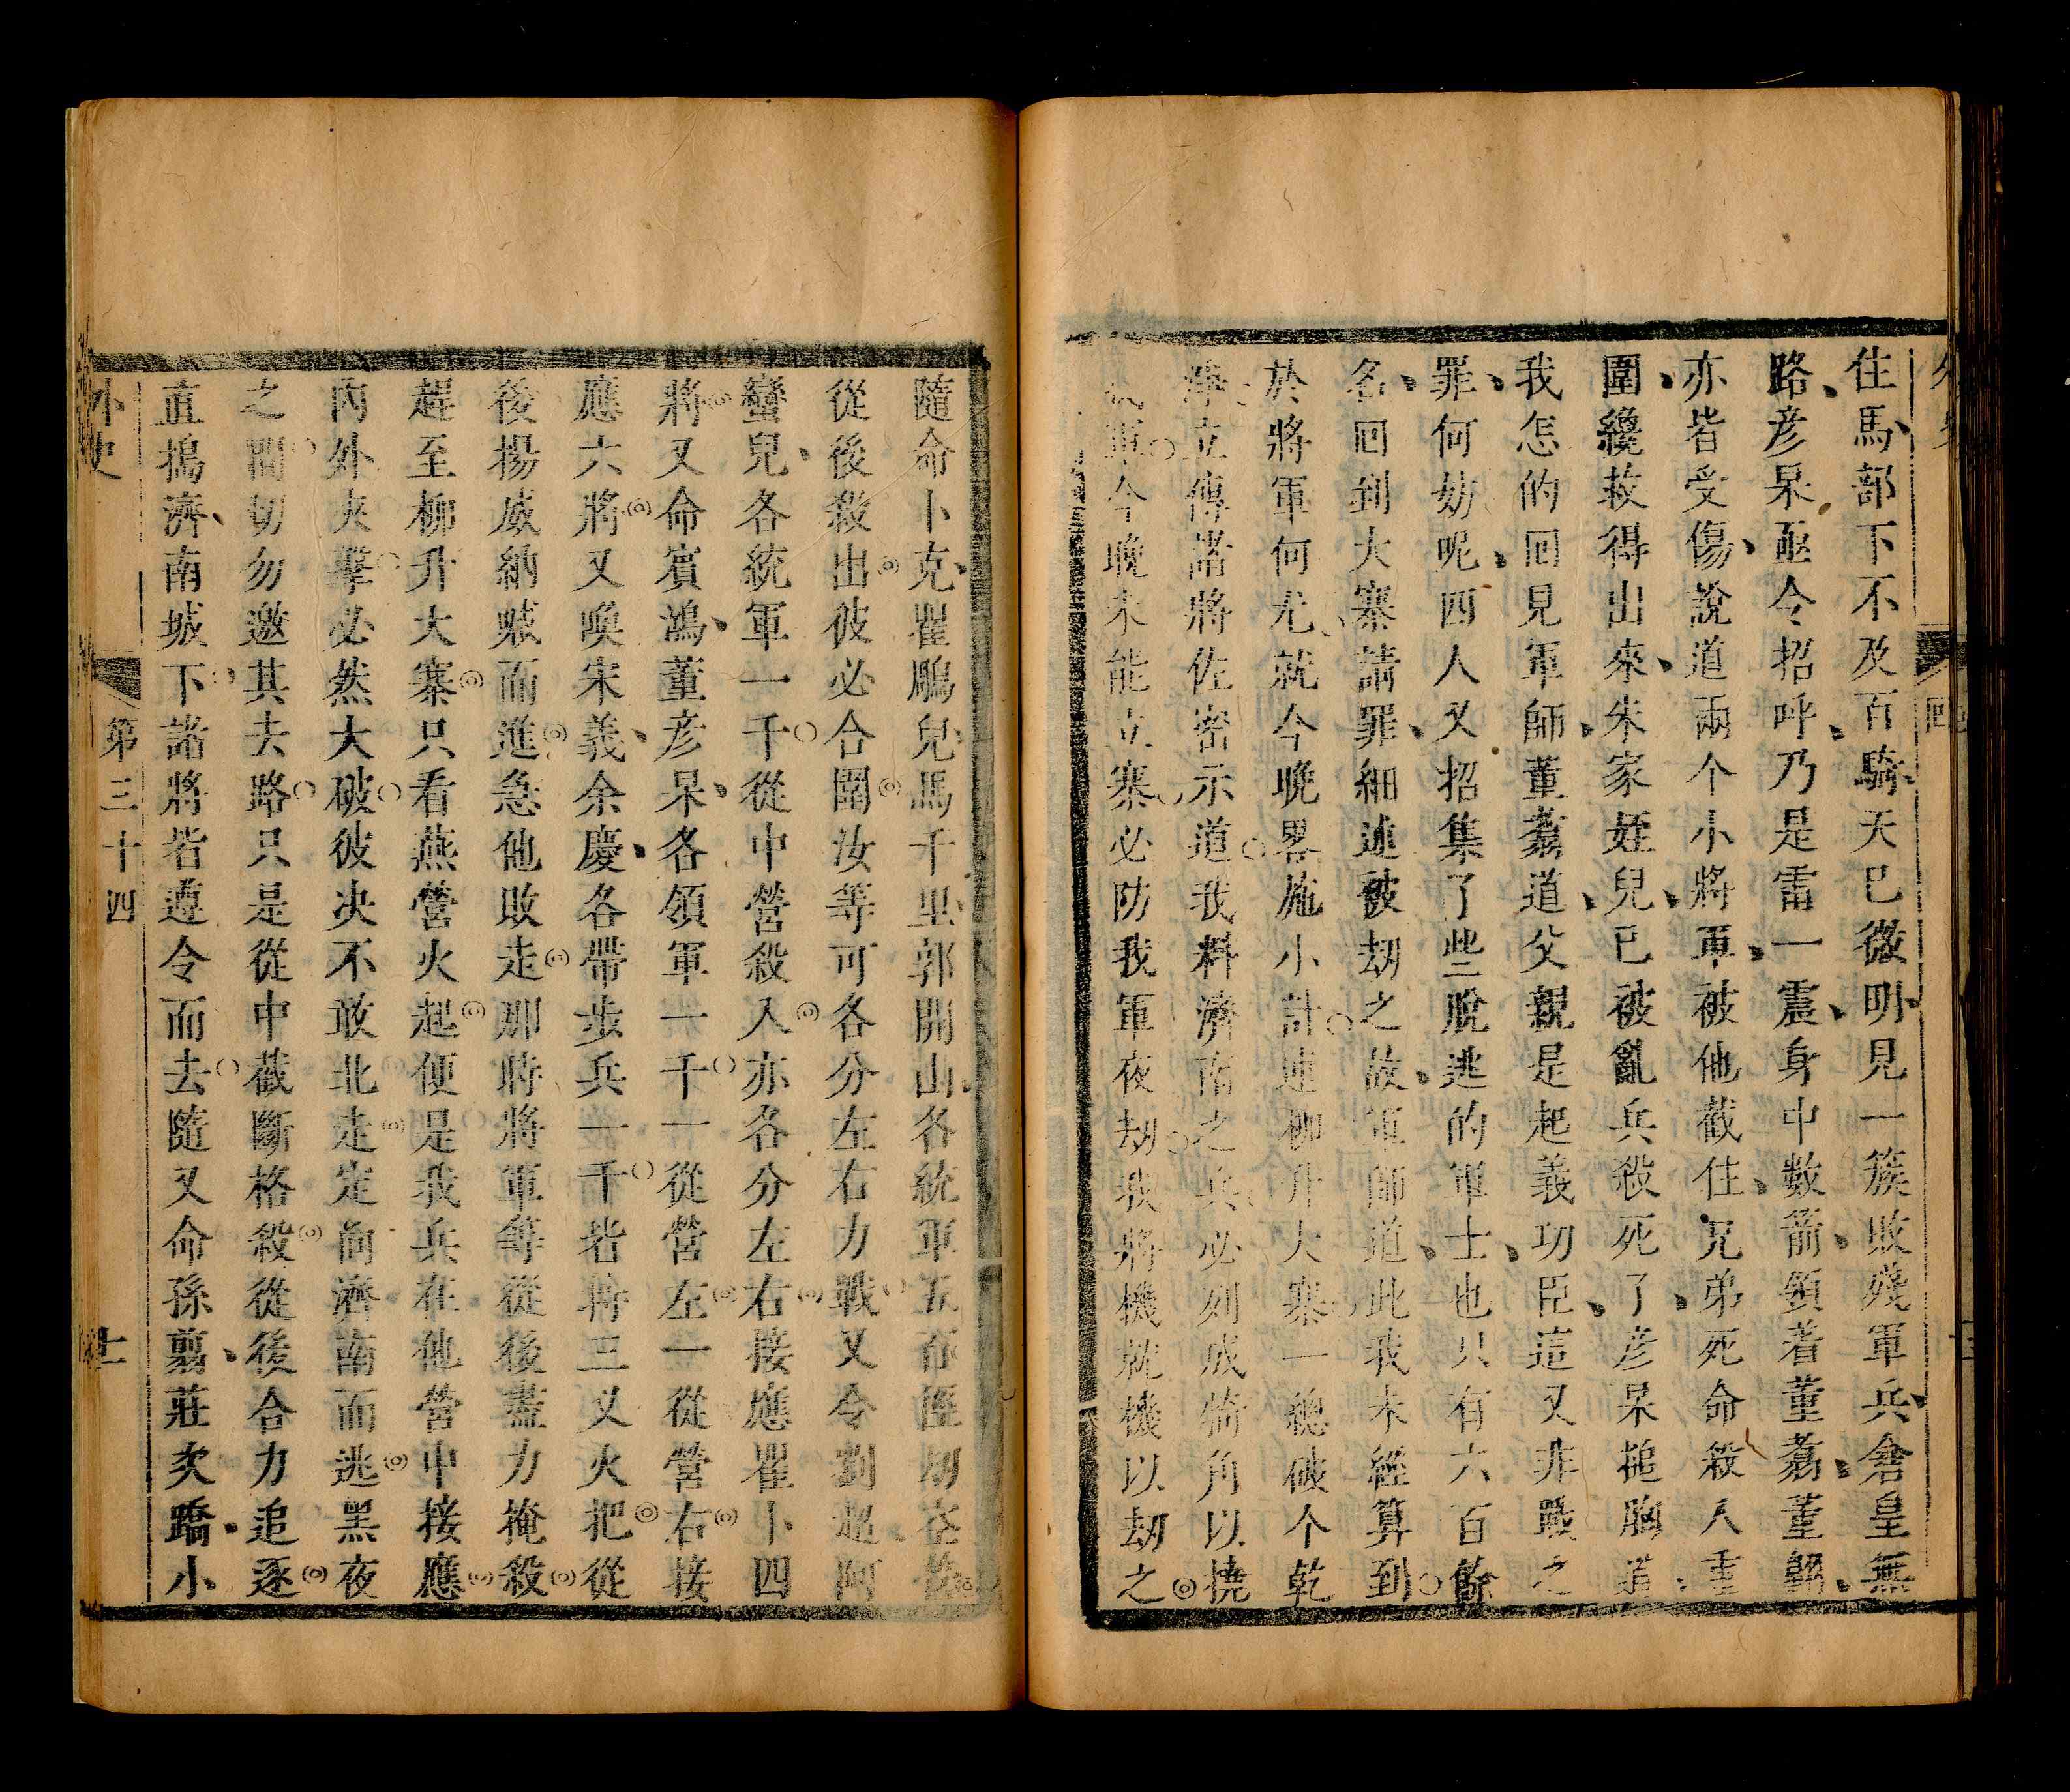 住馬部下不及百騎天已微明見一簇敗殘軍兵倉皇無
路彦杲亟令招呼乃是雷一震身中數箭領着董翥董翱
亦皆受傷說道兩个小將軍被他截住兄弟死命殺入重
圍纔救得出來朱家姪兒已被亂兵殺死了彦杲搥胸道
我怎的回見軍師董翥道父親是起義功臣這又非戰之
罪何妨呢四人又招集了些脫逃的軍士也只有六百餘
名回到大寨請罪細述被刼之故軍師道此我未經算到
於將軍何尤就今晚畧施小計連柳升大寨一總破个乾
淨立傳諸將佐密示道我料濟南之兵必列成犄角以撓
軍今晚未能立寨必防我軍夜刼我將機就機以刼之
隨命卜克瞿鵰兒馬千里郭開山各統軍五百徑刼
從後殺出彼必合圍汝等可各分左右力戰又令劉超阿
蠻兒各統軍一千從中營殺入亦各分左右接應瞿卜四
將又命賓鴻董彦杲各領軍一千一從營左一從營右接
應六將又喚宋義余慶各帶步兵一千皆持三乂火把從
後揚威納喊而進急他敗走那時將軍等從後盡力掩殺
趕至柳升大寨只看燕營火起便是我兵在他營中接應
內外夾擊必然大破彼决不敢北走定向濟南而逃黑夜
之間切勿邀其去路只是從中截斷格殺從後合力追逐
直搗濟南城下諸將皆遵令而去隨又命孫翦莊次蹻小
外史
第三十四